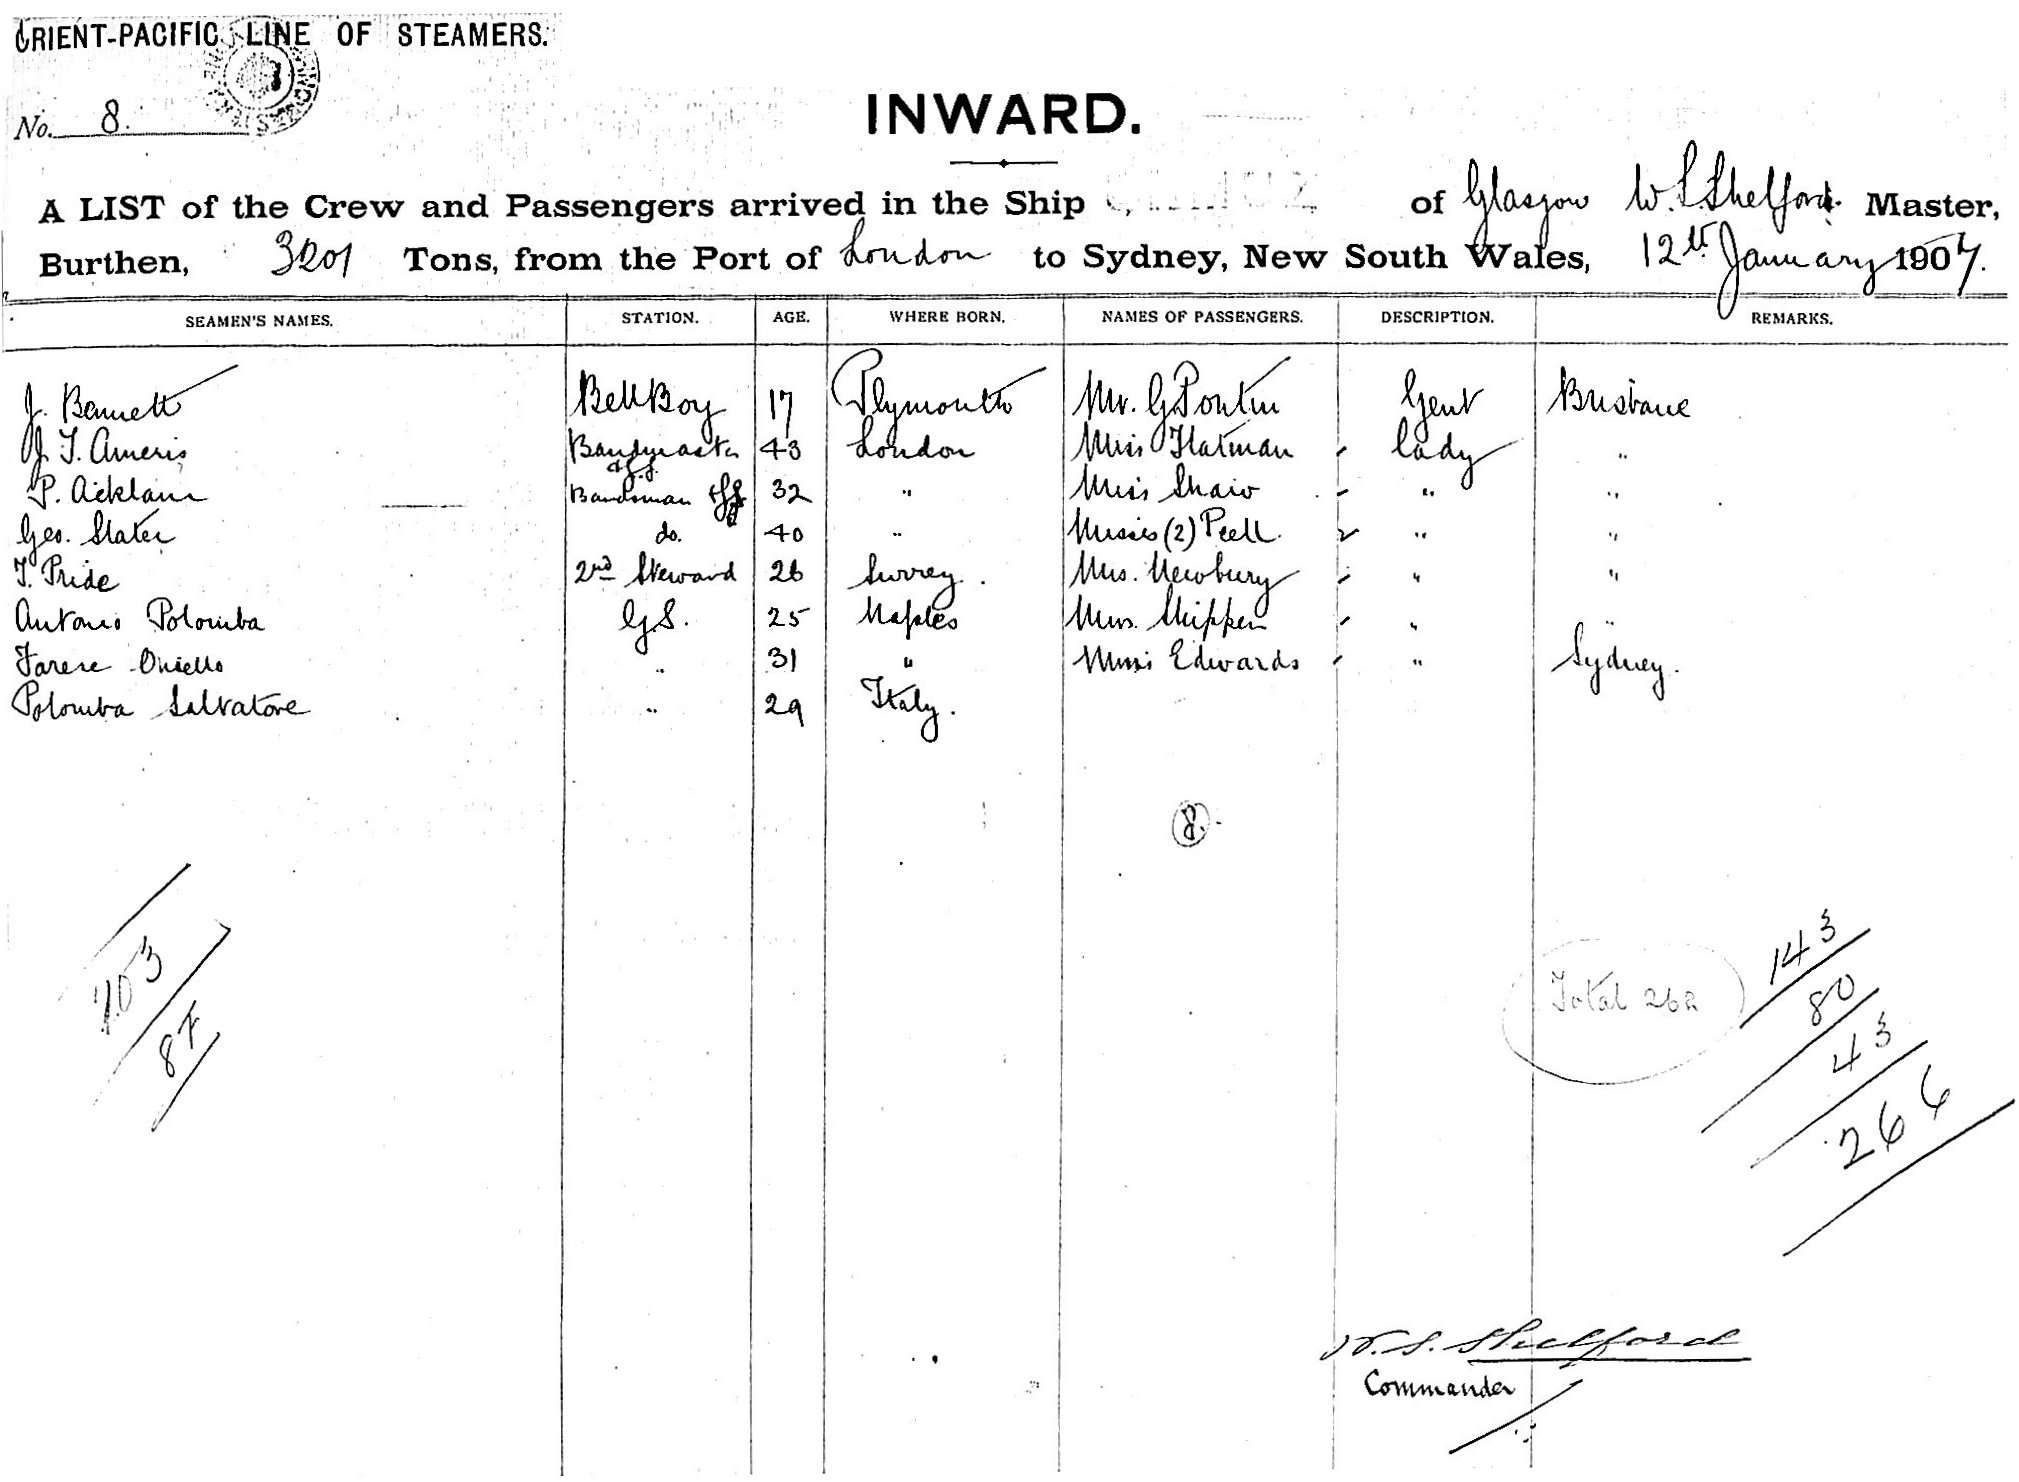 ORIENT-PACIFIC LINE OF STEAMERS.
No. 8.
INWARD.
A LIST of the Crew and Passengers arrived in the Ship of Glasgow W. S. Shelford Master,
Burthen, 3201 Tons, from the Port of London to Sydney, New South Wales, 12th January 1907.
SEAMEN'S NAMES. STATION. AGE. WHERE BORN. NAMES OF PASSENGERS. DESCRIPTION. REMARKS.
J. Bennett Bell Boy 17 Plymouth Mr. G Pontin Gent Brisbane
J. T. Ameris Bandmaster 43 London Miss Flatman Lady "
& G.S.
P. Acklam Bandsman & G.S. 32 " Miss Shaw " "
Geo. Slater do. 40 " Misses (2) Peell " "
T. Pride 2nd Steward 26 Surrey. Mrs. Newbury " "
Antonio Polomba G.S. 25 Naples Mrs. Skipper " "
Farese Oniello " 31 " Miss Edwards " Sydney.
Polomba Salvatore " 29 Italy.
8.
103
87
Total 262
143
80
43
266
W. S. Shelford
Commander